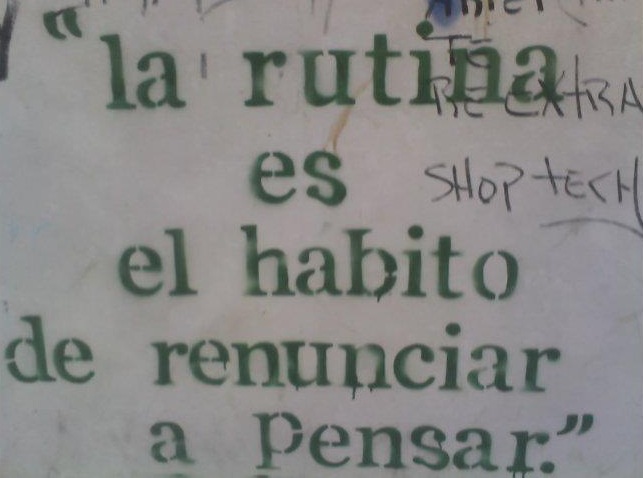 "la rutina
es
el habito
de renunciar
a pensar."
TE
RE EXTRA
SHOP TECH